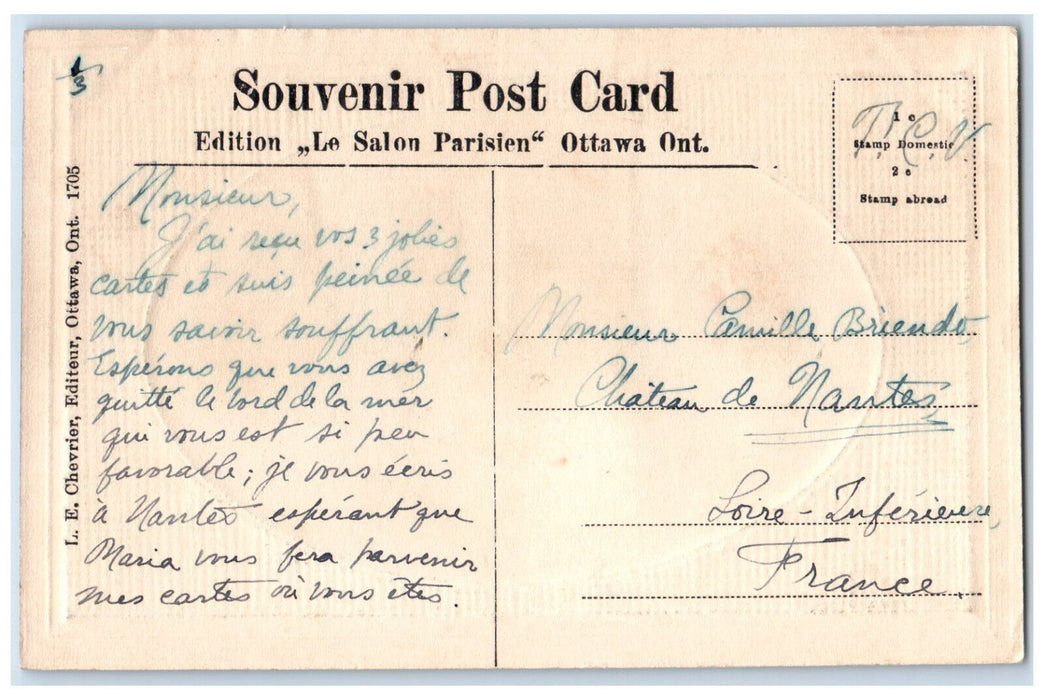 1/3
Souvenir Post Card
Edition „Le Salon Parisien“ Ottawa Ont.
1 c
Stamp Domestic
2 c
Stamp abroad
T. C. V.
L. E. Chevrier, Editeur, Ottawa, Ont. 1705
Monsieur,
J'ai reçu vos 3 jolies
cartes et suis peinée de
vous savoir souffrant.
Espérons que vous avez
quitté le bord de la mer
qui vous est si peu
favorable; je vous écris
à Nantes espérant que
Maria vous fera parvenir
mes cartes où vous êtes.
Monsieur Camille Briendo,
Château de Nantes,
Loire-Inférieure,
France.